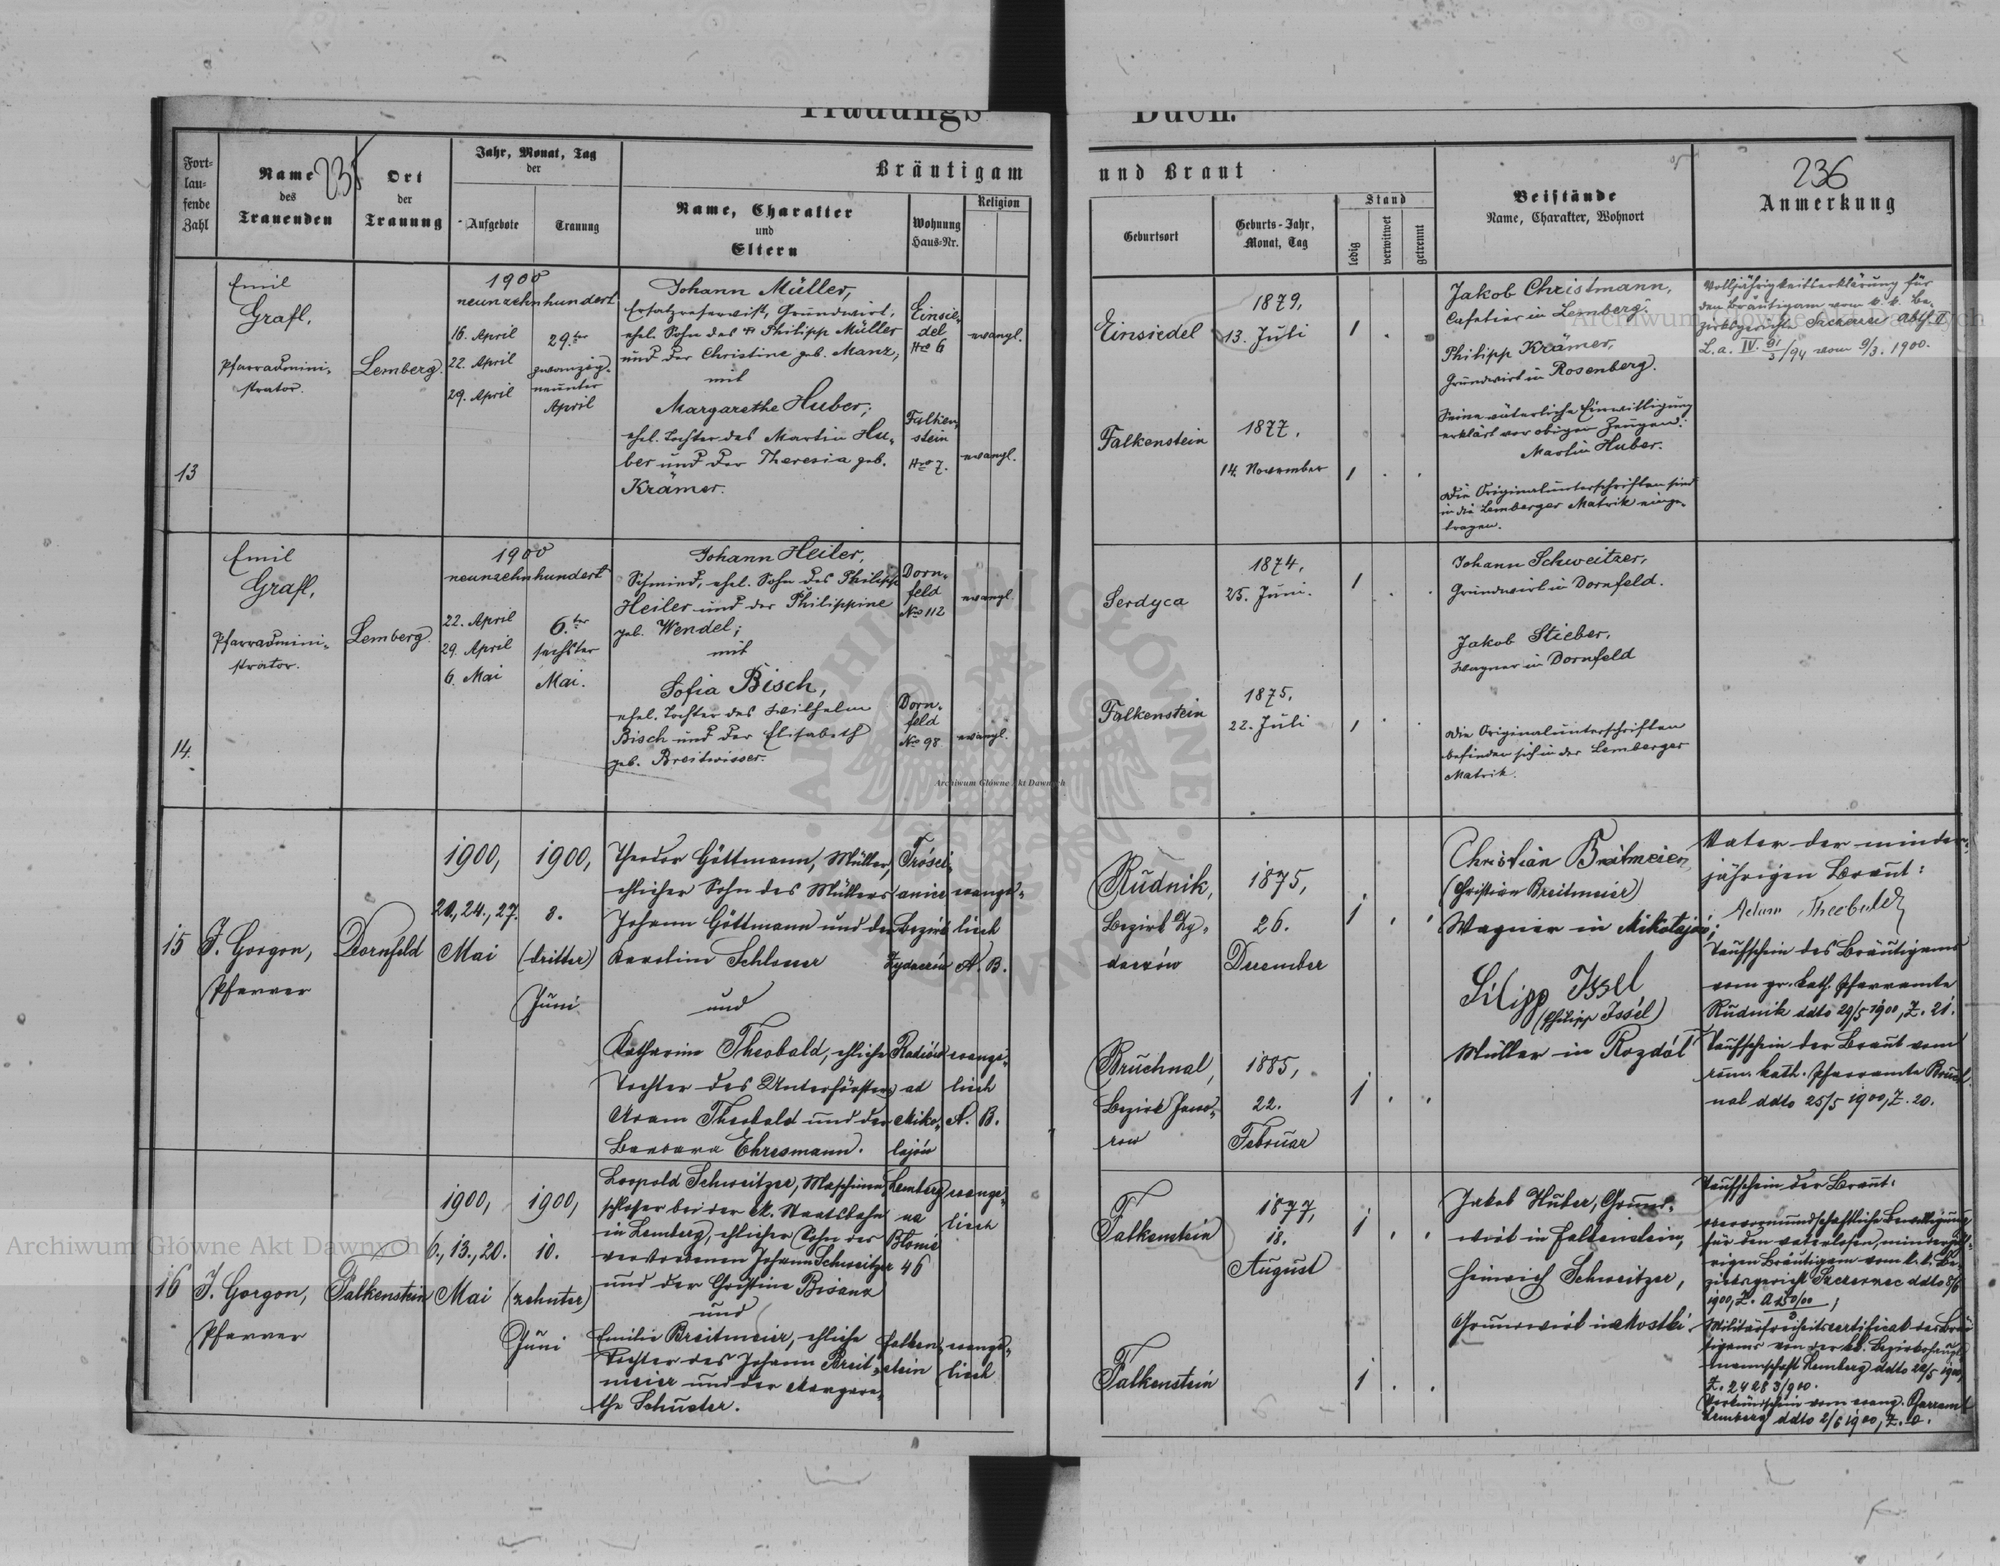 Trauungs Buch.
Fort-
lau-
fende
Zahl
Name
des
Trauenden
235
Ort
der
Trauung
Jahr, Monat, Tag
der
Aufgebote
Trauung
Bräutigam
Name, Charakter
und
Eltern
Wohnung
Haus-Nr.
Religion
und Braut
Geburtsort
Geburts-Jahr,
Monat, Tag
Stand
ledig
verwitwet
getrennt
Beistände
Name, Charakter, Wohnort
236
Anmerkung
13
Emil
Grafl,
Pfarradmini-
strator.
Lemberg.
1900
neunzehnhundert
16. April
22. April
29. April
29.ter
zwanzig-
neunter
April
Johann Müller,
Ersatzreservist, Grundwirt,
ehel. Sohn des Philipp Müller
und der Christine geb. Manz,
mit
Margarethe Huber,
ehel. Tochter des Martin Hu-
ber und der Theresia geb.
Krämer.
Einsie-
del
Nro 6
evangl.
Falken-
stein
Nro 7.
evangl.
Einsiedel
1879,
13. Juli
1
Falkenstein
1877.
14. November
1
Jakob Christmann,
Cafetier in Lemberg.
Philipp Krämer,
Grundwirt in Rosenberg.
Seine väterliche Einwilligung
erklärt vor obigen Zeugen:
Martin Huber.
Die Originalunterschriften sind
in die Lemberger Matrik einge-
tragen.
Volljährigkeitserklärung für
den Bräutigam vom k. k. Be-
zirksgerichte Abth. II
vom 9/3. 1900.
14.
Emil
Grafl,
Pfarradmini-
strator.
Lemberg.
1900
neunzehnhundert
22. April
29. April
6. Mai
6.ter
sechster
Mai.
Johann Heiler,
Schmied, ehel. Sohn des Philipp
Heiler und der Philippine
geb. Wendel;
mit
Sofia Bisch,
ehel. Tochter des Wilhelm
Bisch und der Elisabeth
geb. Breitwieser.
Dorn-
feld
Nro 112
evangl.
Dorn-
feld
Nro 98
evangl.
Serdyca
1874,
25. Juni.
1
Falkenstein
1875,
22. Juli
1
Johann Schweitzer,
Grundwirt in Dornfeld.
Jakob Stieber,
Wagner in Dornfeld
Die Originalunterschriften
befinden sich in der Lemberger
Matrik.
15
J. Gorgon,
Pfarrer
Dornfeld
1900,
20., 24., 27.
Mai
1900,
3.
(dritter)
Juni
Theodor Göttmann, Müller,
ehlicher Sohn des Müllers
Johann Göttmann und der
Karolina Schlosser
und
Katharina Theobald, ehliche
Tochter des Unterförsters
Adam Theobald und der
Barbara Ehresmann.
Bezirk
Żydaczów
evange-
lisch
A. B.
Radiów
ad
Miko-
łajów
evange-
lisch
A. B.
Rudnik,
Bezirk Ży-
daczów
1875,
26.
December
1
Bruchnal,
Bezirk Jawo-
row
1885,
22.
Februar
1
Christian Breitmeier,
(Christian Breitmeier)
Wagner in Mikołajów;
Filipp Issel
(Philipp Issel)
Müller in Rozdół
Vater der minder-
jährigen Braut:
Adam Theobald
Taufschein des Bräutigams
vom gr. kath. Pfarramte
Rudnik ddto 29/5 1900, Z. 21.
Taufschein der Braut vom
röm. kath. Pfarramte Bruch-
nal ddto 25/5 1900, Z. 20.
16
J. Gorgon,
Pfarrer
Falkenstein
1900,
6., 13., 20.
Mai
1900,
10.
(zehnter)
Juni
Leopold Schweitzer, Maschinen-
schlosser bei der kk. Staatsbahn
in Lemberg, ehlicher Sohn des
verstorbenen Johann Schweitzer
und der Christine Bisanz
und
Emilie Breitmeier, ehliche
Tochter des Johann Breit-
meier und der Margare-
the Schuster.
Lemberg
na
Błonie
46
evange-
lisch
Falken-
stein
evange-
lisch
Falkenstein
1877,
18.
August
1
Falkenstein
1
Jakob Huber, Grund-
wirt in Falkenstein,
Heinrich Schweitzer,
Grundwirt in Mostki
Taufschein der Braut.
Obervormundschaftliche Bewilligung
für den vaterlosen, minderjäh-
rigen Bräutigam vom k. k. Be-
zirksgericht Szczerzec ddto
1900, Z.
Militärfreiheitscertificat des Bräu-
tigams von der kk. Bezirkshaupt-
mannschaft Lemberg ddto 22/5 1900
Z. 24283/900.
Verkündschein vom evang. Pfarramt
Lemberg ddto 2/6 1900, Z. 0.
Archiwum Główne Akt Dawnych
Archiwum Główne Akt Dawnych
Archiwum Główne Akt Dawnych